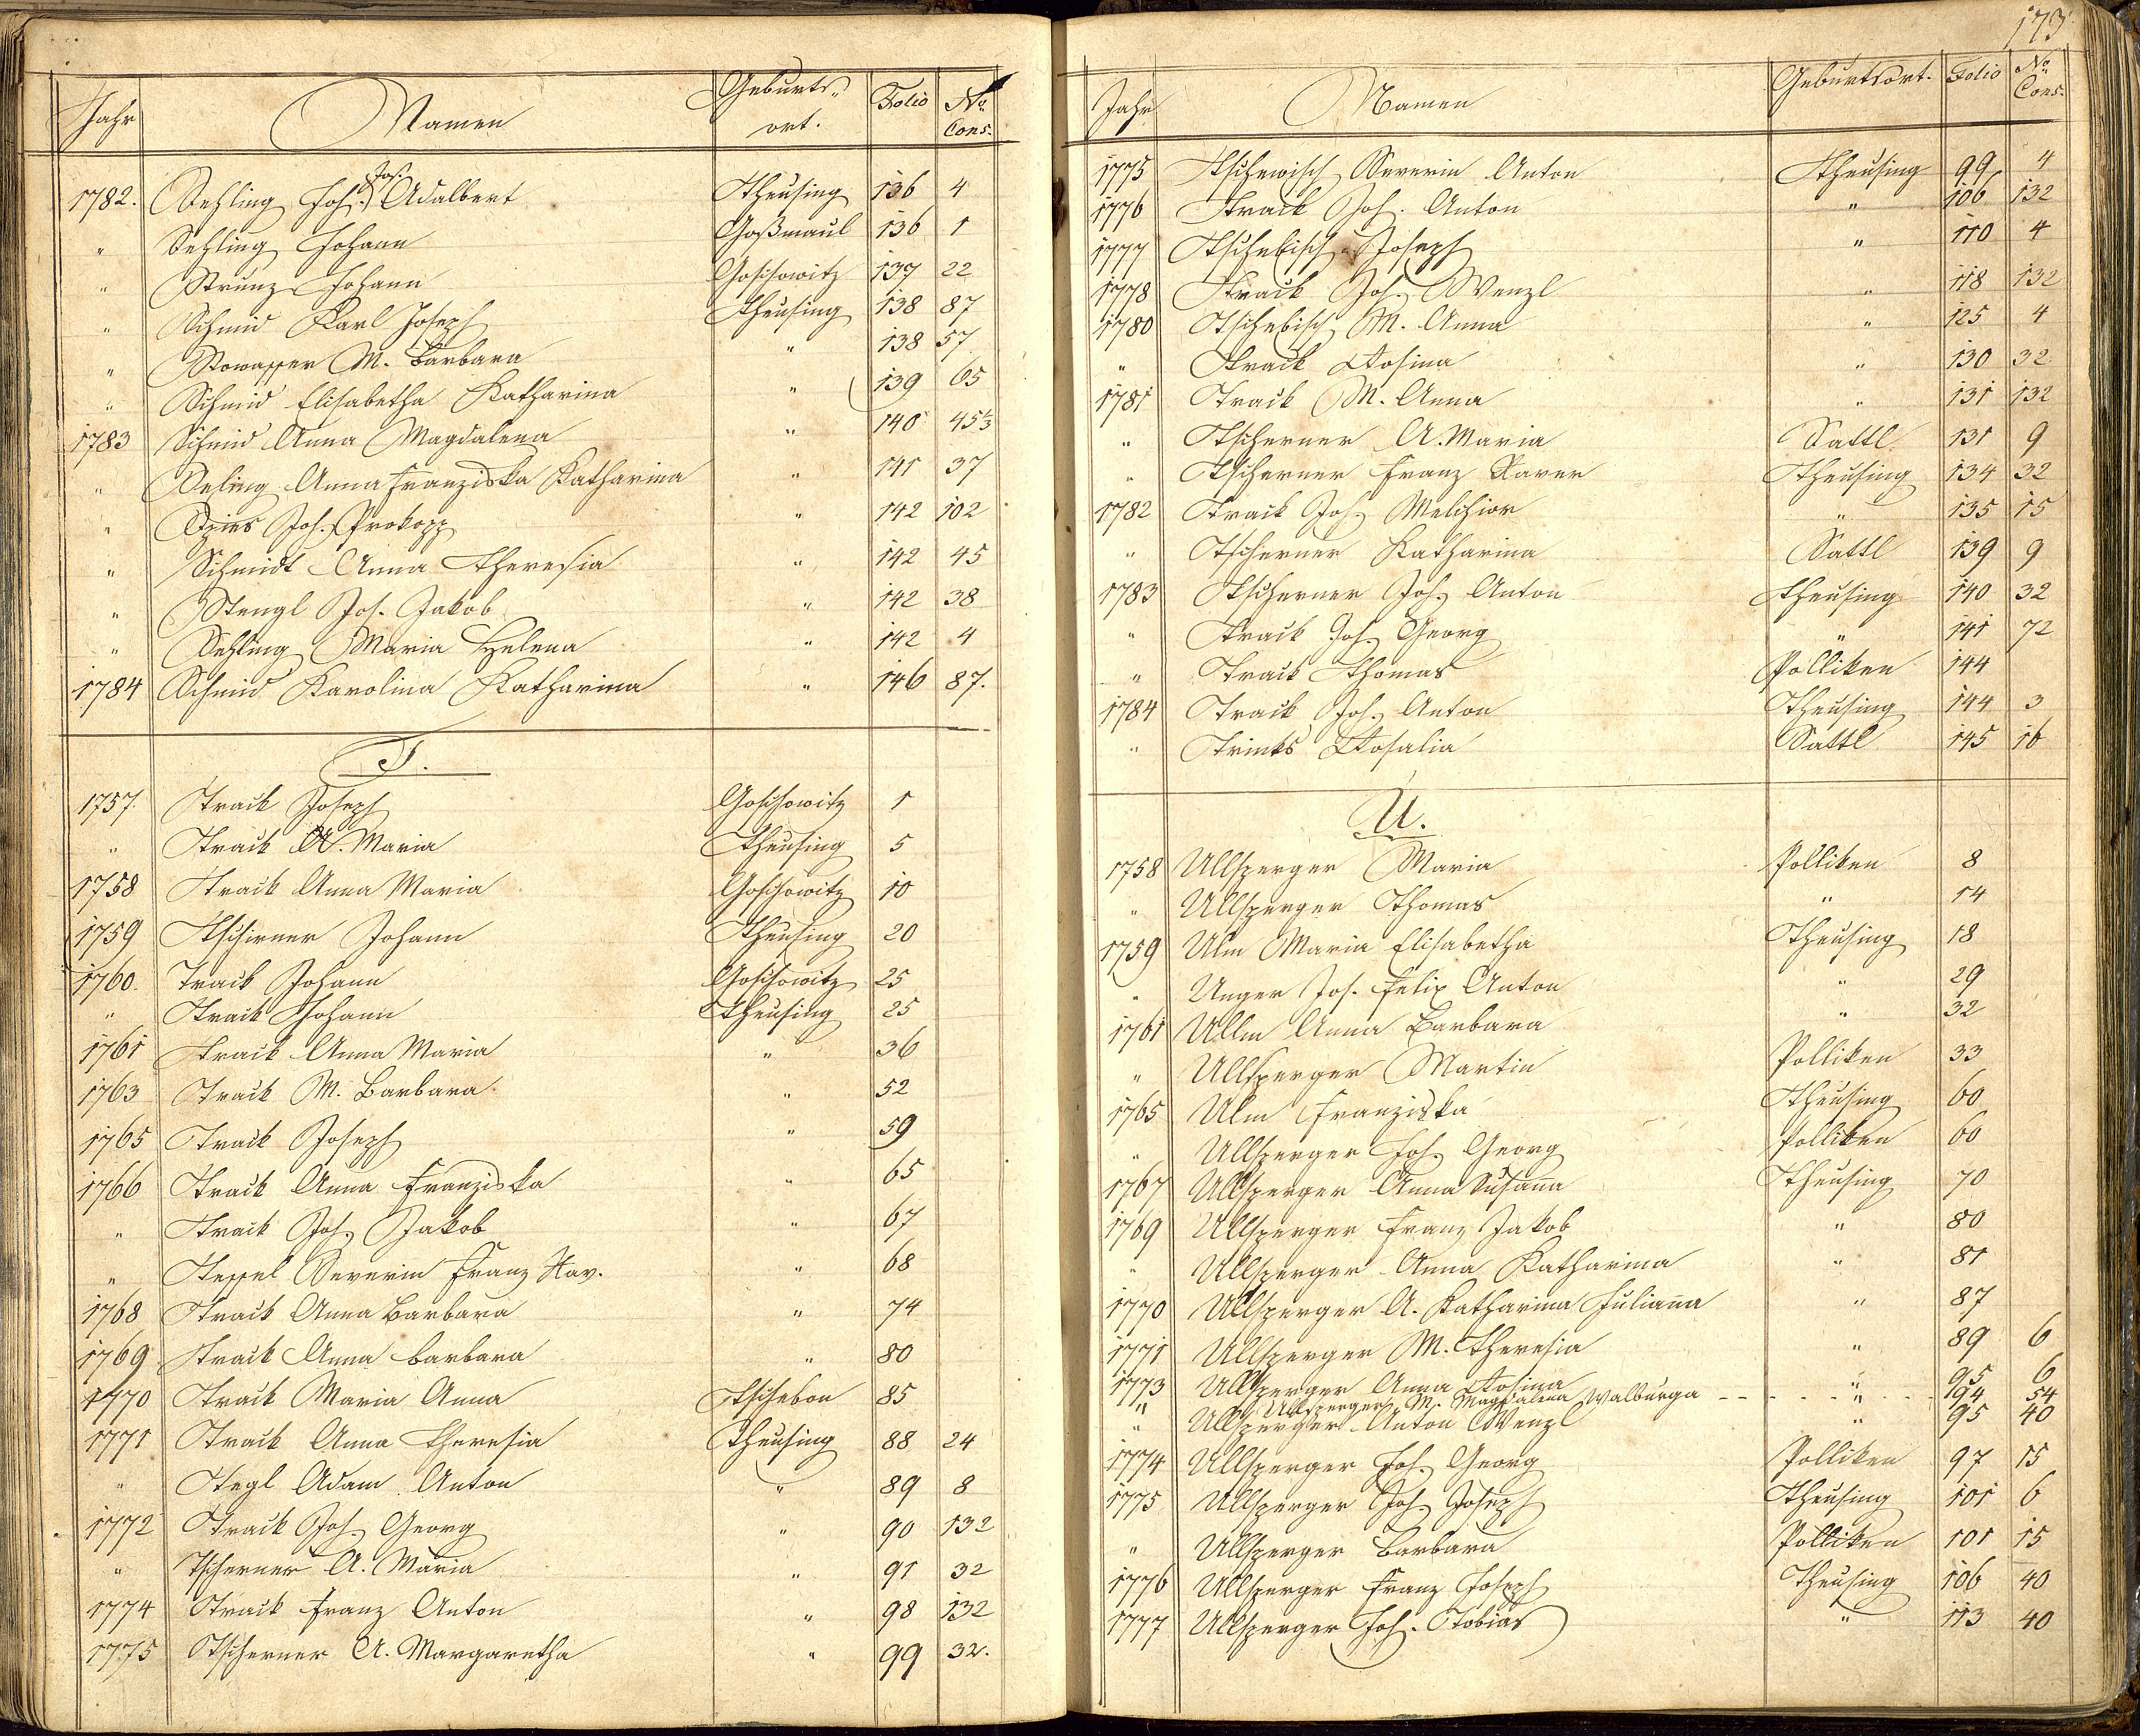 Jahr Namen Geburts- ort. Folio No. Cons.
1782. Sehling Joh. Jos. Adalbert Theusing 136 4
" Sehling Johann Goßmaul 136 1
" Strunz Johann Goschowitz 137 22
" Schmid Karl Joseph Theusing 138 87
" Stowasser M. Barbara " 138 57
" Schmid Elisabetha Katharina " 139 65
1783 Schmid Anna Magdalena " 140
" Seling Anna Franziska Katharina " 141 37
" Joh. Prokopp " 142 102
" Schmidt Anna Theresia " 142 45
" Stengl Jos. Jakob " 142 38
" Sehling Maria Helena " 142 4
1784 Schmid Karolina Katharina " 146 87.
T.
1757. Track Joseph Goschowitz 1
" Track A. Maria Theusing 5
1758 Track Anna Maria Goschowitz 10
1759 Tschirner Johann Theusing 20
1760. Track Johann Goschowitz 25
" Track Johann Theusing 25
1761 Track Anna Maria " 36
1763 Track M. Barbara " 52
1765 Track Joseph " 59
1766 Track Anna Franziska " 65
" Track Joh. Jakob " 67
" Severin Franz Xav. " 68
1768 Track Anna Barbara " 74
1769 Track Anna barbara " 80
1770 Track Maria Anna Tschebon 85
1771 Track Anna Theresia Theusing 88 24
" Tegl Adam Anton " 89 8
1772 Track Joh. Georg " 90 132
" Tscherner A. Maria " 91 32
1774 Track Franz Anton " 98 132
1775 Tscherner A. Margaretha " 99 32.
173
Jahr Namen Geburtsort. Folio No. Cons.
1775 Severin Anton Theusing 99 4
1776 Track Joh. Anton " 106 132
1777 Tschebisch Joseph " 110 4
1778 Track Joh. Wenzl " 118 132
1780 Tschebisch M. Anna " 125 4
" Track Rosina " 130 32
1781 Track M. Anna " 131 132
" Tscherner A. Maria Sattl 131 9
" Tscherner Franz Xaver Theusing 134 32
1782 Track Joh. Melchior " 135 15
" Tscherner Katharina Sattl 139 9
1783 Tscherner Joh. Anton Theusing 140 32
" Track Joh. Georg " 141 72
" Track Thomas Polliken 144
1784 Track Joh. Anton Theusing 144 3
" Trinks Rosalia Sattl 145 16
U.
1758 Ullsperger Maria Polliken 8
" Ullsperger Thomas " 14
1759 Ulm Maria Elisabetha Theusing 18
" Unger Jos. Felix Anton " 29
1761 Ullm Anna Barbara " 32
" Ullsperger Martin Polliken 33
1765 Ulm Franziska Theusing 60
" Ullsperger Joh. Georg Polliken 60
1767 Ullsperger Anna Susanna Theusing 70
1769 Ullsperger Franz Jakob " 80
" Ullsperger Anna Katharina " 81
1770 Ullsperger A. Katharina Julianna " 87
1771 Ullsperger M. Theresia " 89 6
1773 Ullsperger Anna Rosina " 95 6
" Ullsperger M. Magdalena Walburga " 194 54
" Ullsperger Anton Wenzl " 95 40
1774 Ullsperger Joh. Georg Polliken 97 15
1775 Ullsperger Joh. Joseph Theusing 101 6
" Ullsperger Barbara Polliken 101 15
1776 Ullsperger Franz Joseph Theusing 106 40
1777 Ullsperger Joh. Tobias " 113 40